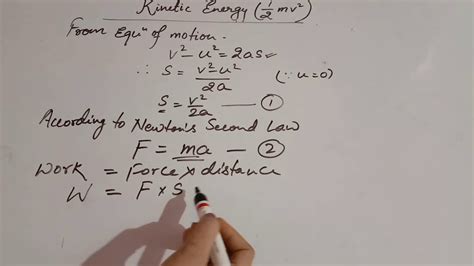 Kinetic Energy (½ mv²)
From Equⁿ of motion -
v² - u² = 2as
∴ S = v² - u² / 2a (∵ u = 0)
S = v² / 2a — ①
According to Newton's Second Law
F = ma — ②
Work = Force × distance
W = F × S